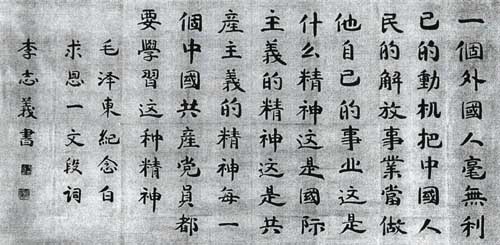 一個外國人毫無利
己的動机把中國人
民的解放事業當做
他自己的事业这是
什么精神这是國际
主義的精神这是共
産主義的精神每一
個中國共産党員都
要學習这种精神
毛泽東紀念白
求恩一文段词
李志義書